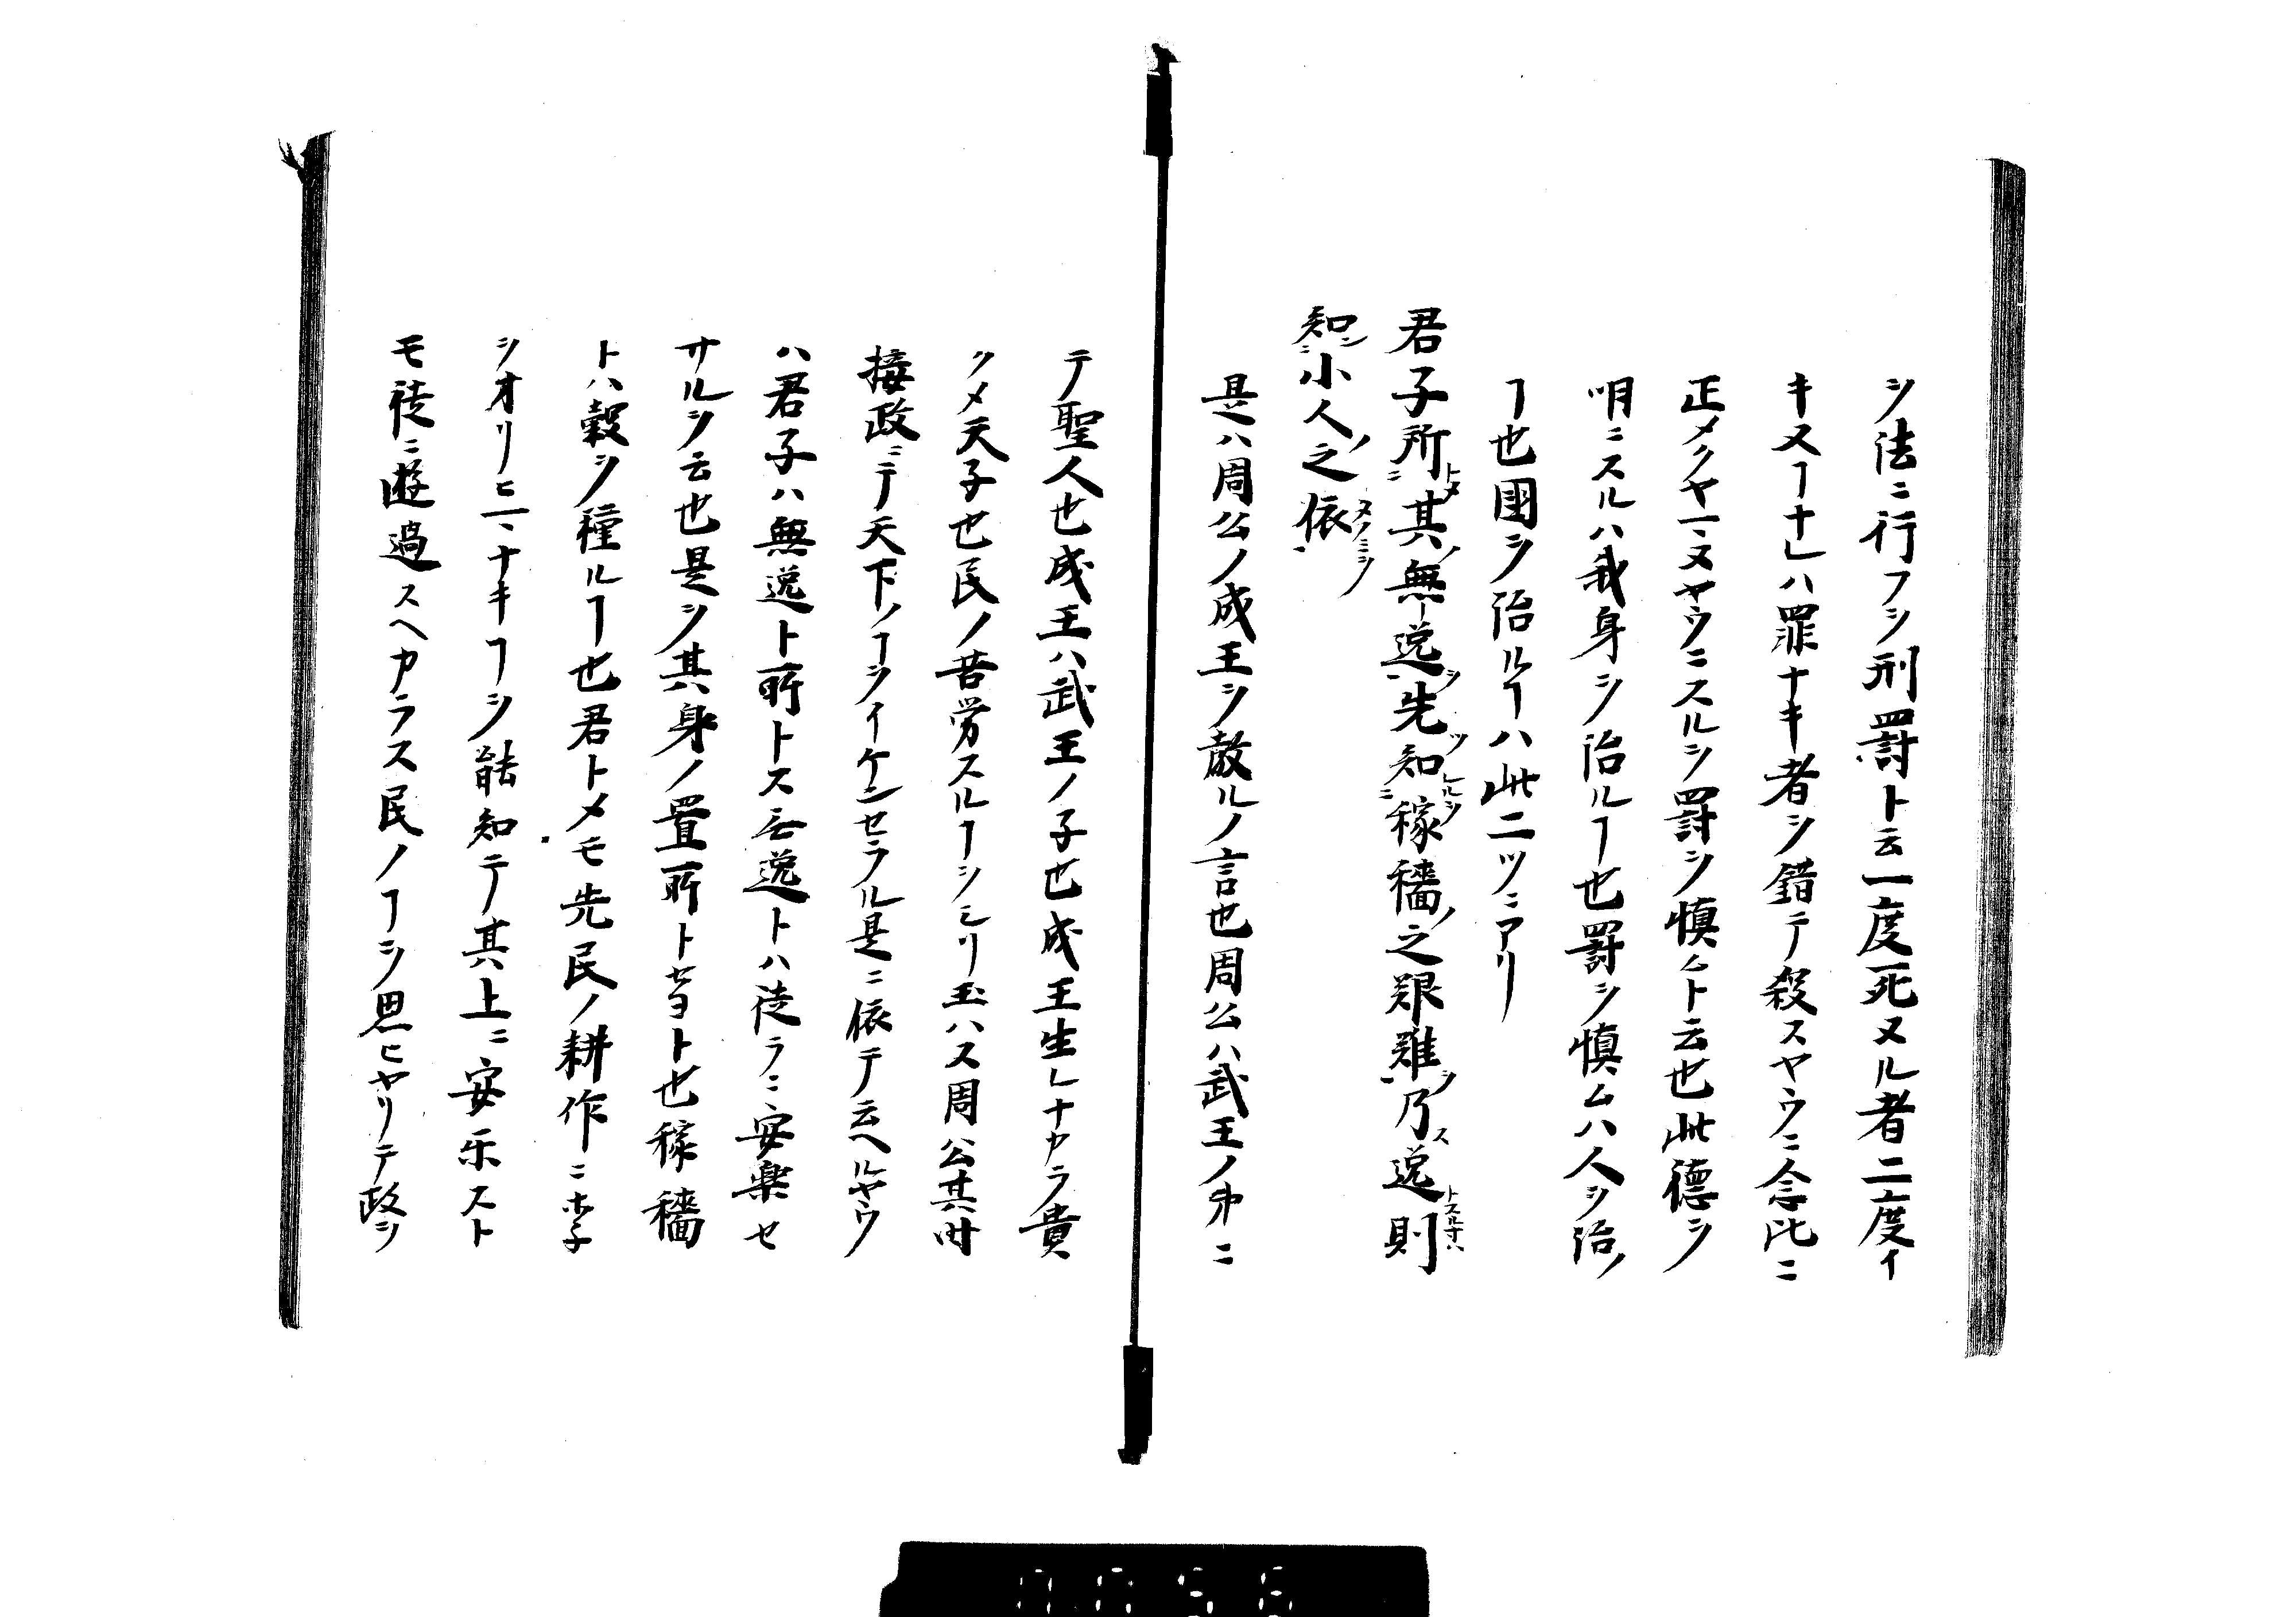 ヲ法ニ行フヲ刑罰ト云一度死ヌル者二度イ
キヌヿナレハ罪ナキ者ヲ錯テ殺スヤウニ念比ニ
正メクヤマヌヤウニスルヲ罰ヲ慎ムト云也此徳ヲ
明ニスルハ我身ヲ治ルヿ也罰ヲ慎ムハ人ヲ治ル
ヿ也国ヲ治ルヿハ此二ツニアリ
君子所其無逸先知稼穡之艱難乃逸則
知小人之依
是ハ周公ノ成王ヲ教ルノ言也周公ハ武王ノ弟ニ
テ聖人也成王ハ武王ノ子也成王生レナカラ貴
クメ天子也民ノ苦労スルヿヲシリ玉ハス周公其時
接政ニテ天下ノヿヲイケンセラル是ニ依テ云ヘルヤウ
ハ君子ハ無逸ト所トス無逸トハ徒ラニ安楽セ
サルヲ云也是ヲ其身ノ置所トセヨト也稼穡
トハ穀ヲ種ルヿ也君トメモ先民ノ耕作ニホ子
ヲオリヒマナキヿヲ能知テ其上ニ安楽スト
モ徒ニ遊過スヘカラス民ノヿヲ思ヒヤリテ政ヲ